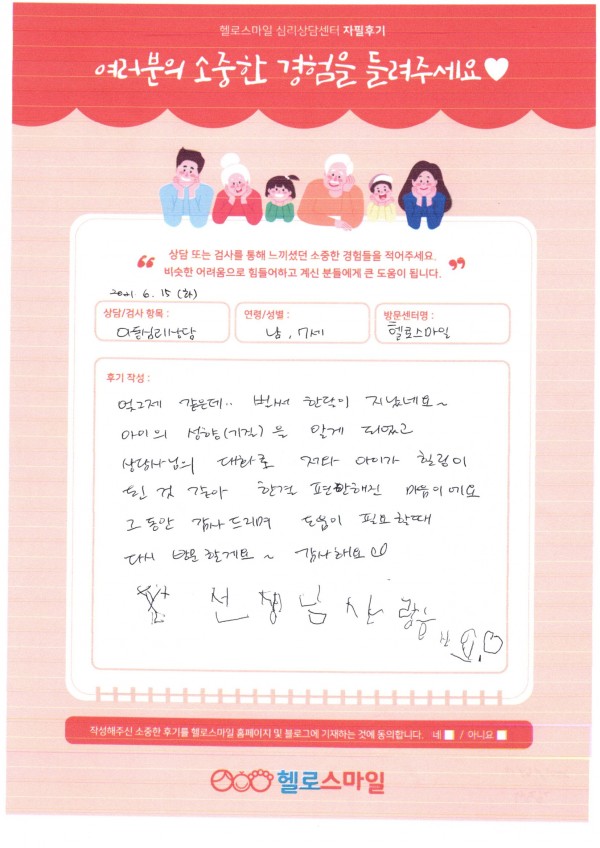 헬로스마일 심리상담센터 자필후기
여러분의 소중한 경험을 들려주세요
“ 상담 또는 검사를 통해 느끼셨던 소중한 경험들을 적어주세요.
비슷한 어려움으로 힘들어하고 계신 분들에게 큰 도움이 됩니다. ”
2021. 6. 15 (화)
상담/검사 항목 :
아동심리상담
연령/성별 :
남, 7세
방문센터명 :
헬로스마일
후기 작성 :
엊그제 같은데.. 벌써 한달이 지났네요~
아이의 성향(기질)을 알게 되었고
상담사님의 대화로 저와 아이가 힐링이
된 것 같아 한결 편안해진 마음이에요
그동안 감사드리며 도움이 필요할때
다시 방문할게요~ 감사해요
선생님 사랑해요
작성해주신 소중한 후기를 헬로스마일 홈페이지 및 블로그에 기재하는 것에 동의합니다. 네 / 아니요
헬로스마일